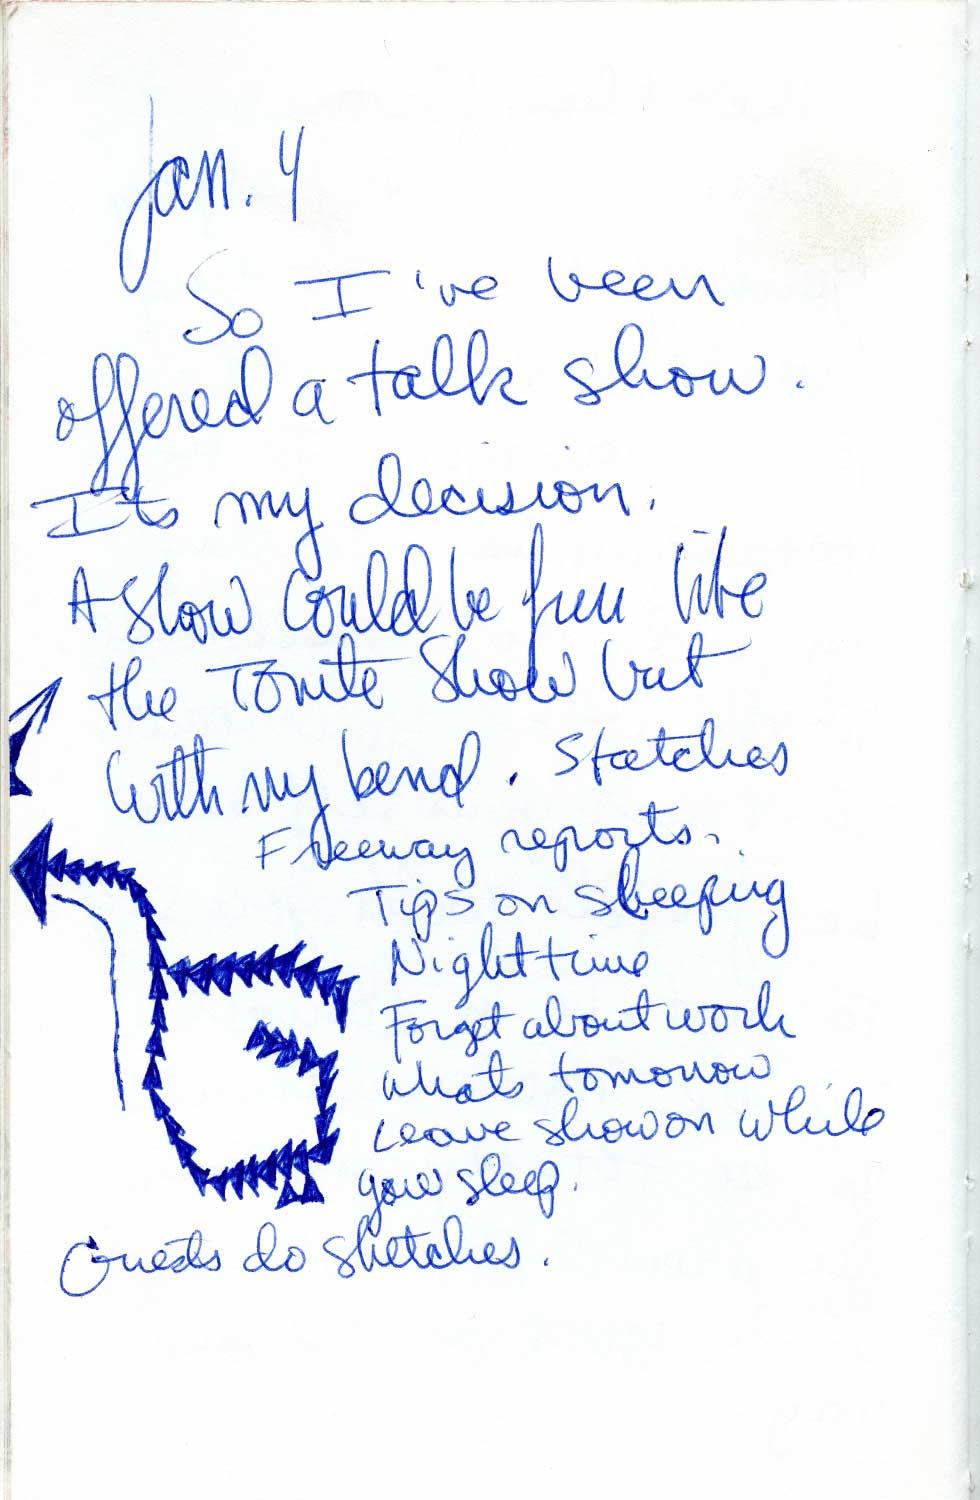 Jan. 4
So I've been
offered a talk show.
Its my decision.
A show could be fun like
the Tonite Show but
with my band. Sketches
Freeway reports.
Tips on sleeping
Nighttime
Forget about work
whats tomorrow
Leave show on while
you sleep.
Guests do sketches.